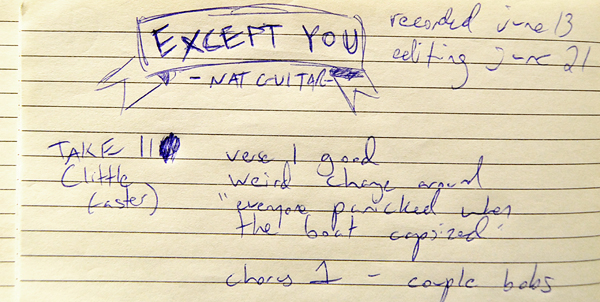 EXCEPT YOU
- NAT GUITAR -
recorded june 13
editing june 21
TAKE 11
(little
faster)
verse 1 good
weird change around
"everyone panicked when
the boat capsized"
chorus 1 - couple bobs